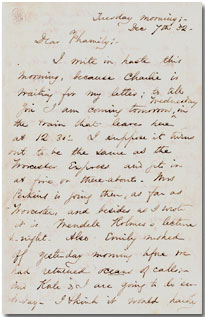 Tuesday morning;-
Dec 7th 82-
Dear Phamily;-
I write in haste this
morning, because Charlie is
waiting for my letter; to tell
you I am coming tomorrow, Wednesday
in the train that leaves here
at 12.30. I suppose it turns
out to be the same as the
Worcester Express and gets in
at five or there-abouts. Mrs
Perkins is going then, as far as
Worcester, and besides as I want
it is Wendell Holmes's lecture
to-night. Also Emily
off yesterday morning before we
had returned oceans of calls-
and Kate & I are going to do
to-day. I think it would have